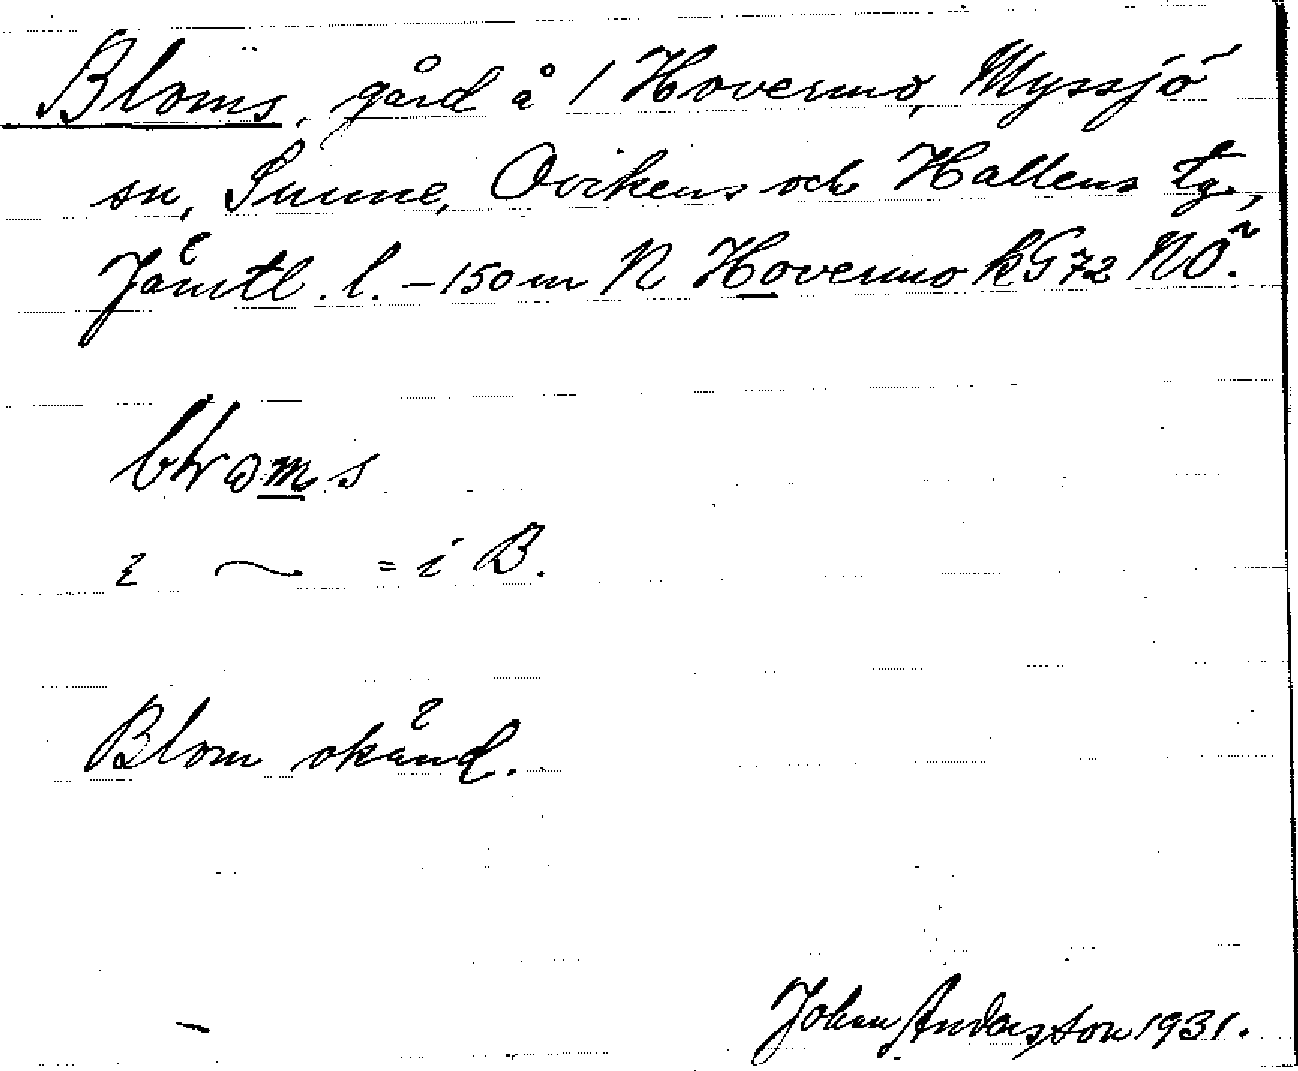 Bloms, gård å 1 Hovermo, Myssjö
sn, Sunne, Ovikens och Hallens tg,
Jämtl. l. – 150 m N Hovermo kG 72 NÖ.
bɫoms
i ~ = i B.
Blom okänd.
Johan Andersson 1931.